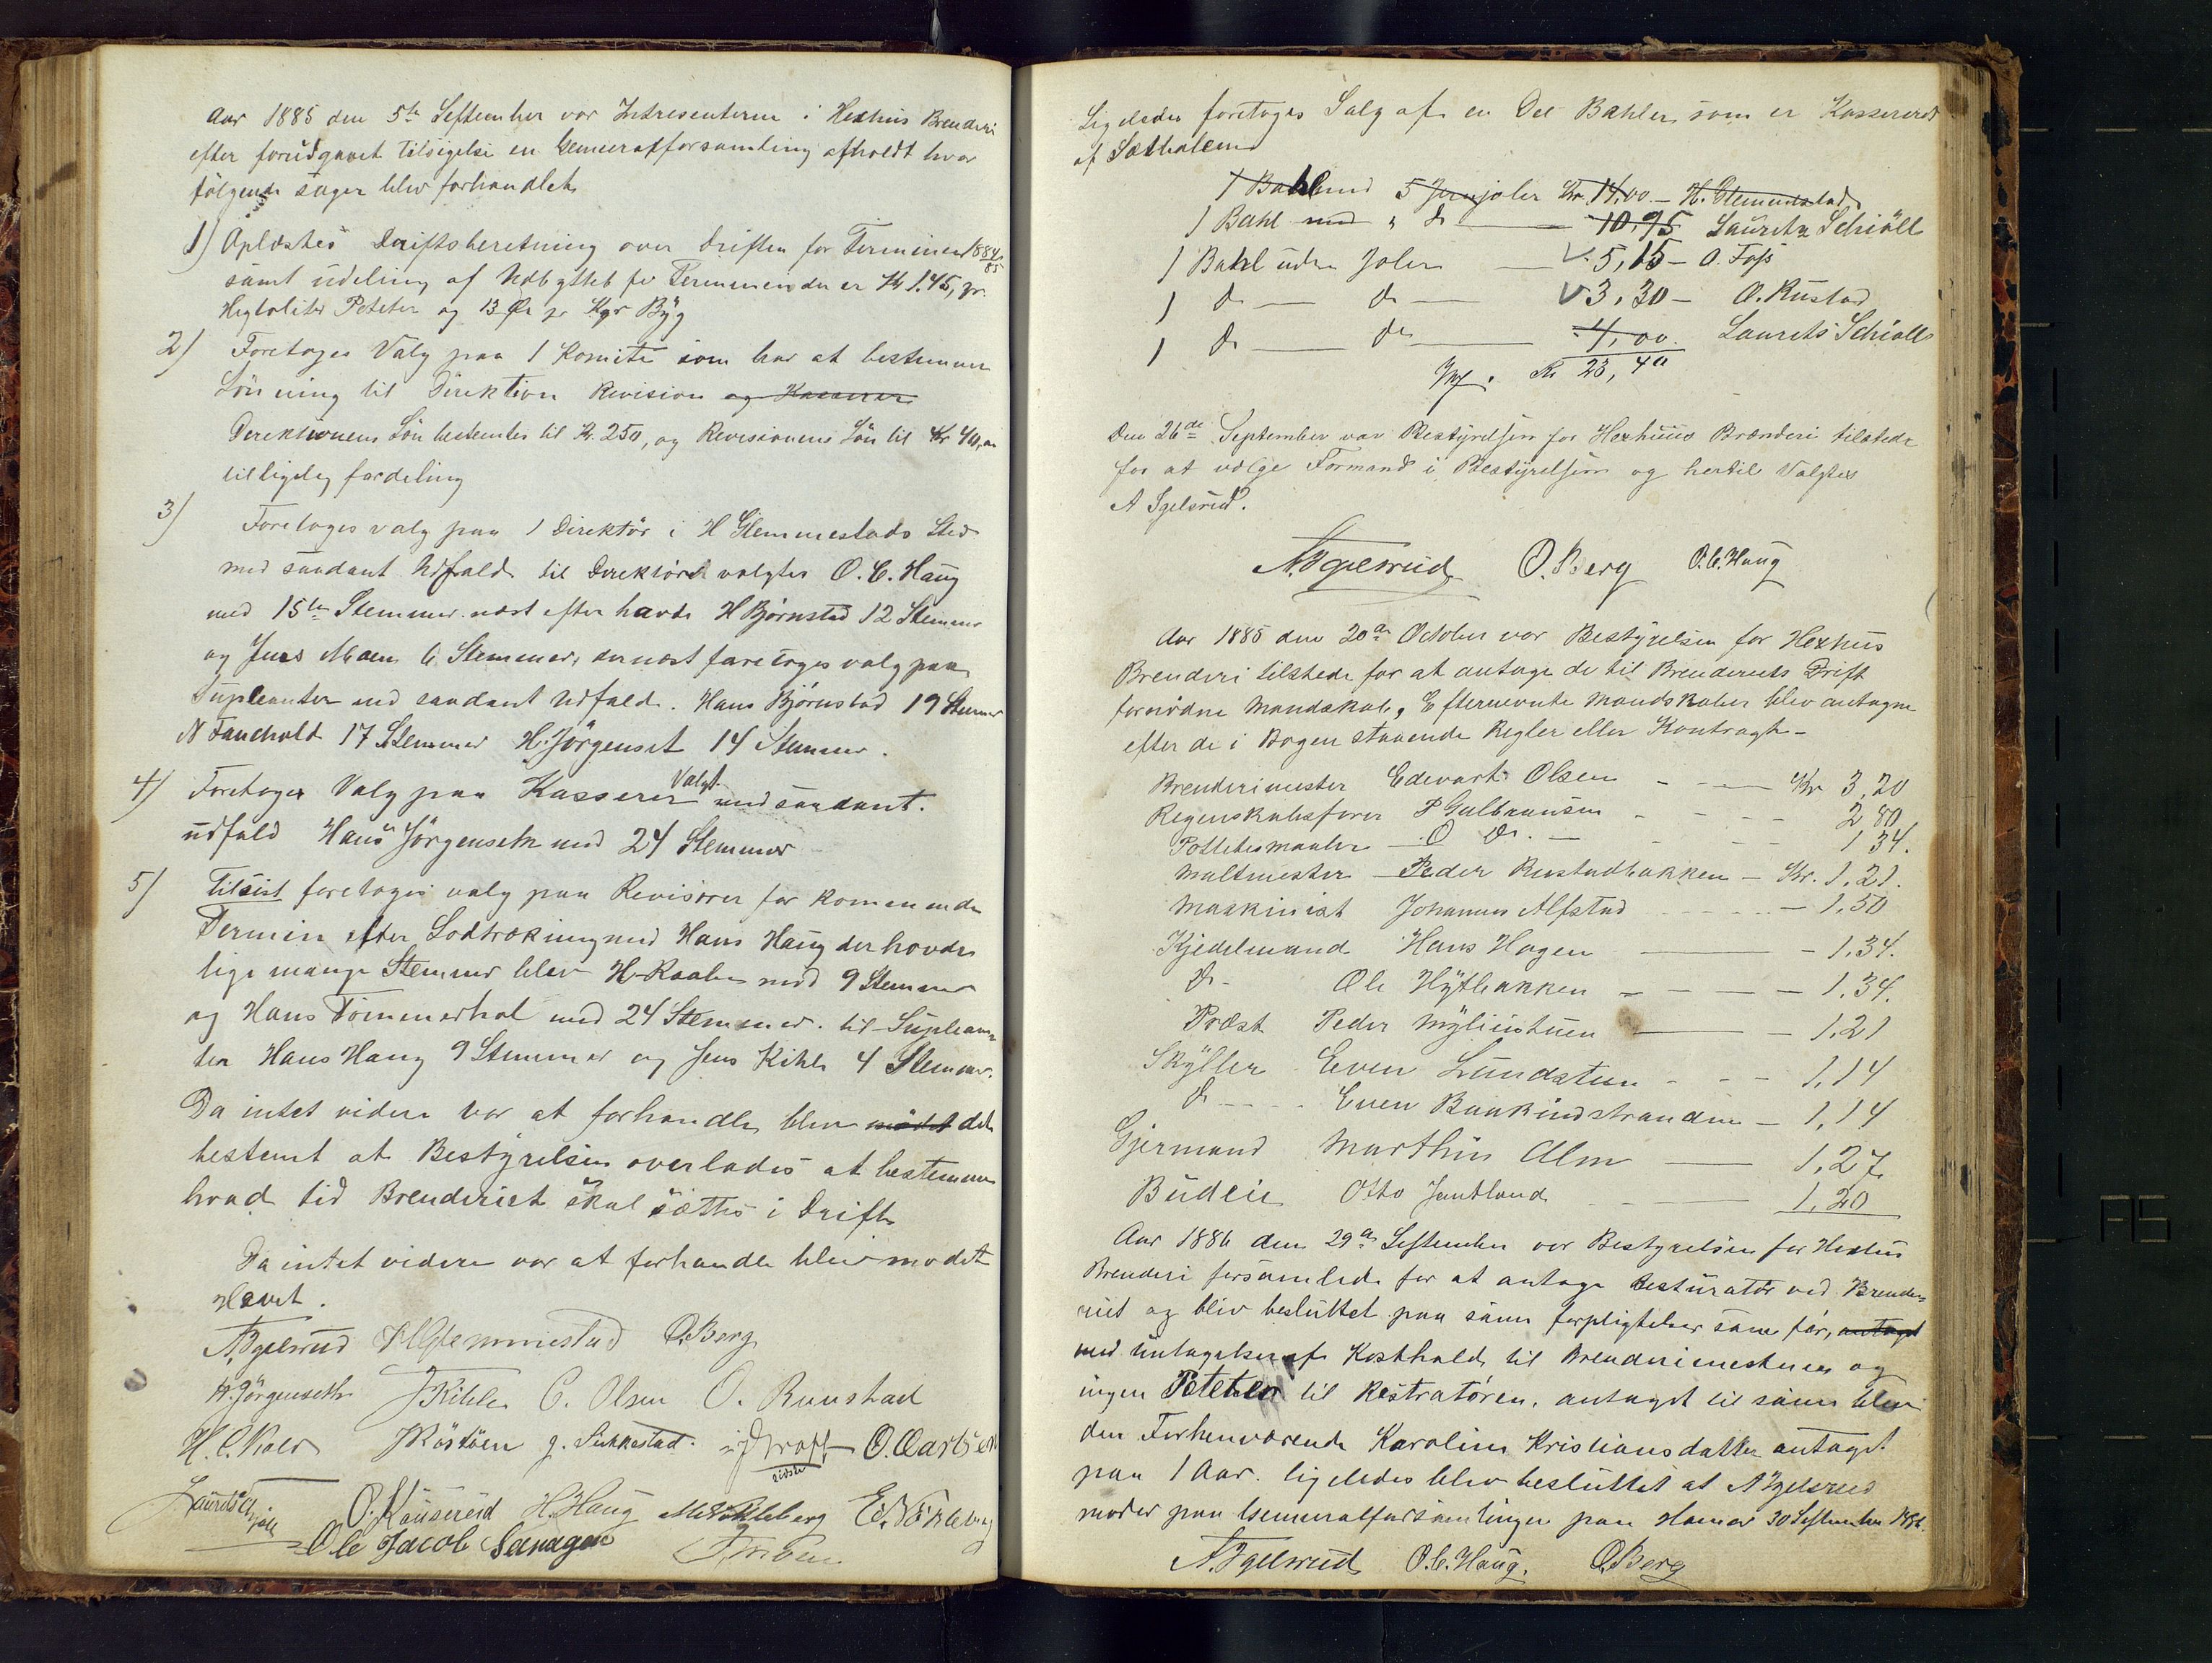 Aar 1885 den 5te September var Intresenterne i Hexhus Brenderi
efter forudgaaet tilsigelse en Generalforsamling afholdt hvor
følgende sager blev forhandlet
1) Oplæstes Driftsberetning over driften for Terminen 1884/85
samt udeling af Udbyttet for Terminen der er Kr 1.45, pr.
Hegtoliter Peteter og 13 Øre pr Kgr Byg
2) Foretoges Valg paa 1 Komite som har at bestemme
Lønning til Direktion Revision og Kasserer
Direktionens Løn bestemtes til Kr. 250, og Revisionens Løn til Kr 40,00
til ligelig fordeling
3) Foretoges valg paa 1 Direktør i H Glemmestads Sted
med saadant Udfald til Direktør valgtes O. C. Haug
med 15te Stemmer. næst efter havde H Bjørnstad 12 Stemmer
og Jens Moen 6 Stemmer, dernæst foretoges valg paa
Supleanter med saadant Udfald. Hans Bjørnstad 19 Stemmer
N Fauchald 17 Stemmer H. Jörgenset 14 Stemmer.
4) Foretoges Valg paa Kasserer Valgt med saadant.
udfald Hans Jörgenseth med 24 Stemmer
5) Tilsist foretoges valg paa Revisorer for kommende
Termin efter Lodtrækning med Hans Haug der havde
lige mange Stemmer blev H. Raabe med 9 Stemmer
og Hans Tømmerhol med 24 Stemmer. til Suplean-
ter Hans Haug 9 Stemmer og Jens Kihle 4 Stemmer.
Da intet videre var at forhandle blev mødet det
bestemt at Bestyrelsen overlades at bestemme
hvad tid Brenderiet skal sættes i Drift
Da intet videre var at forhandle blev mødet
Hævet.
A. Igelsrud H Glemmestad O. Berg
H. Jörgenseth J Kihle C. Olsen O. Ruustad
H. C. Kolv J Röstöen J. Sukkestad O. Carlsen
Laurits Schjöll O. Kauserud H. Haug M Sökleberg E. Sökleberg
Ole Jacob Sanagen J. Moen
Ligeledes foretoges Salg af en Del Bahler som er Kasserert
af Sætbalene
1 Bahl med 5 Jernjoler Kr. 14,00 – H. Glemmestad
1 Bahl med " do — 10,95 Lauritz Schiöll
1 Bahl uden Joler — 5,15 – O. Foss
1 do — do — 3,30 – O. Rustad
1 do — do — 4,00. Laurits Schiöll
Kr 23,40
Den 26de September var Bestyrelsen for Hexhuus Brænderi tilstede
for at vælge Formand i Bestyrelsen og hertil Valgtes
A Igelsrud.
A. Igelsrud O. Berg O. C. Haug
Aar 1885 den 20de October var Bestyrelsen for Hexhus
Brenderi tilstede for at antage de til Brenderiets Drift
fornødne Mandskab, Efternevnte Mandskaber blev antagne
efter de i Bogen staaende Regler eller Kontragt –
Brenderimester Edevart Olsen – – — Kr 3,20
Regenskabsfører P Gulbransen – – – – 2 80
Pottetesmaaler – O Do. — – – – 1 34.
Maltmester – Peder Rustadbakken – Kr. 1.21.
Maskinist Johannes Alfstad – – – – – 1,50
Kjedelmand Hans Hagen — – 1.34.
Do – Ole Hytbakken – – — – 1.34.
Præst Peder Myliustuen — – 1,21
Skyller Even Lundstuen – – – 1,14
Do – – . Even Baukindstranden – 1,14
Gjermand Marthin Alm — 1,27
Büdeie Otto Jemtland – — 1,20
Aar 1886 den 29de September var Bestyrelsen for Hexhus
Brenderi forsamlede for at antage Resturatør ved Brende-
riet og blev besluttet paa samme forpligtelser som før, antaget
med Untagelse af Kosthald til Brenderimesteren og
ingen Peteter til Restratøren, antaget til samme blev
den Forhenværende Karoline Kristiansdatter antaget
paa 1 Aar. ligeledes blev besluttet at A Igelsrud
møder paa Generalforsamlingen paa Hamar 30 September 1886.
A. Igelsrud O. C. Haug. O. Berg